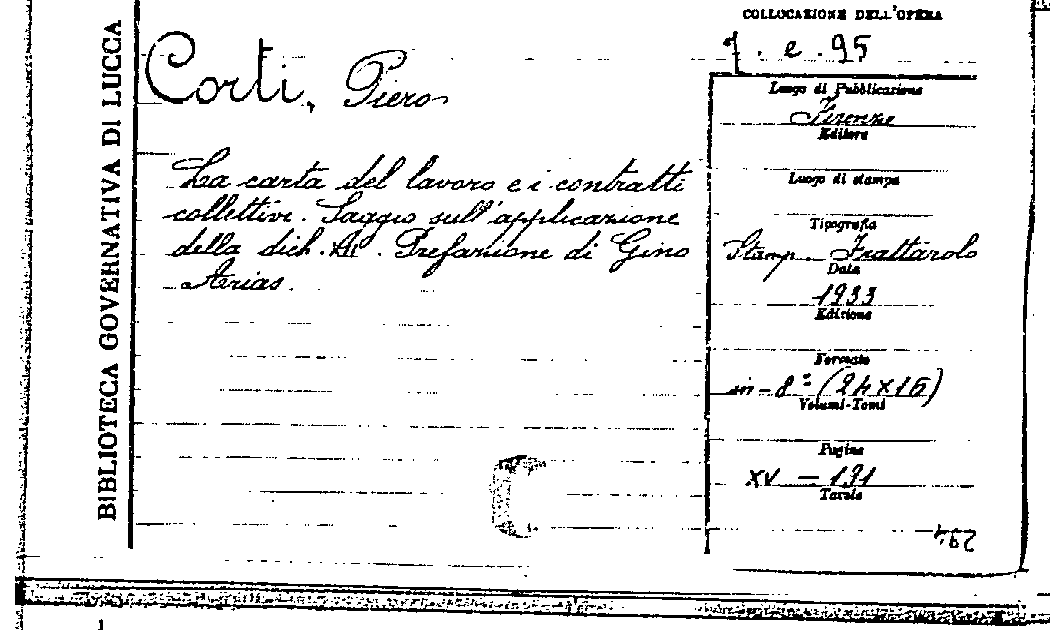 BIBLIOTECA GOVERNATIVA DI LUCCA
Corti, Piero
La carta del lavoro e i contratti
collettivi. Saggio sull'applicazione
della dich. Prefazione di Gino
Arias.
COLLOCAZIONE DELL'OPERA
e. 95
Luogo di Pubblicazione
Firenze
Editore
Luogo di stampa
Tipografia
Stamp. Frattarolo
Data
1933
Edizione
Formato
in-8° (24x16)
Volumi-Tomi
Pagine
XV - 191
Tavole